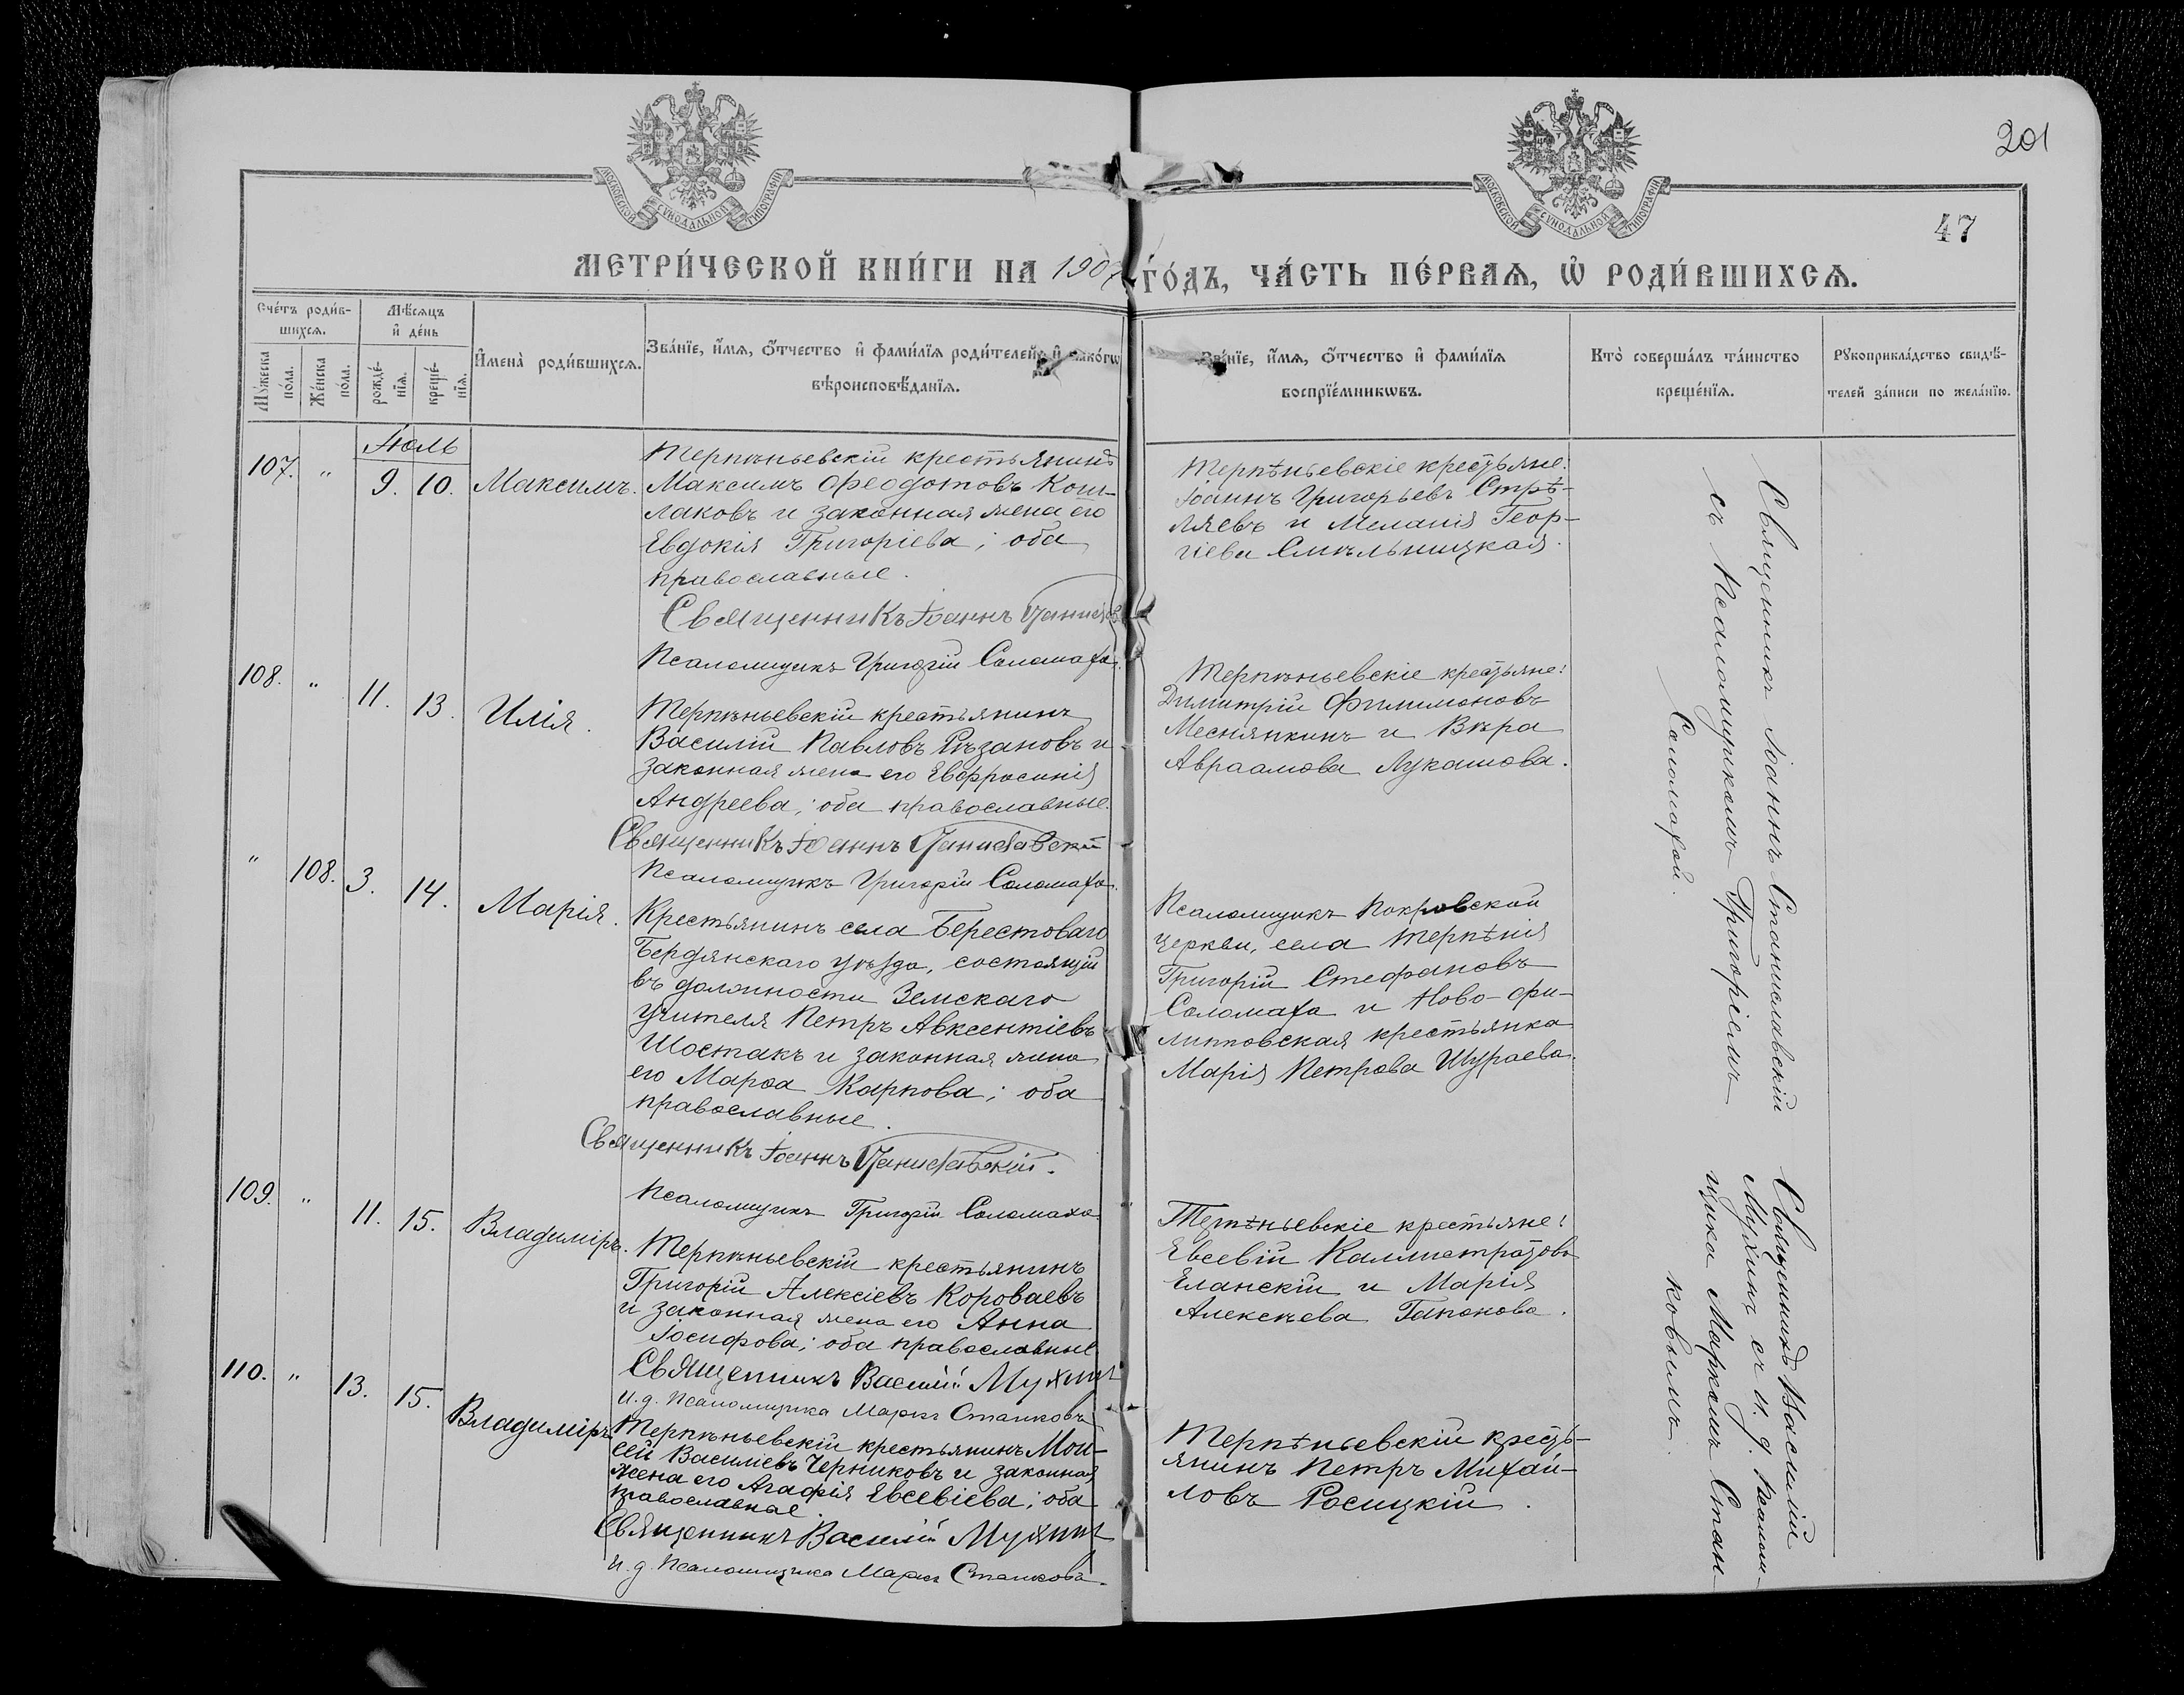 201
47
МОСКОВСКОЙ СѴНОДАЛЬНОЙ ТИПОГРАФІИ
МОСКОВСКОЙ СѴНОДАЛЬНОЙ ТИПОГРАФІИ
МЕТРИ́ЧЕСКОЙ КНИ́ГИ НА 1907 ГО́ДЪ, ЧА́СТЬ ПЕ́РВАѦ, Ѡ҆ РОДИ́ВШИХСѦ.
Сче́тъ роди́в-
шихсѧ.
Мꙋ́жеска по́ла.
Же́нска по́ла.
Мѣ́сѧцъ
и҆ де́нь
рожде́-
нїѧ.
креще́-
нїѧ.
И҆мена̀ роди́вшихсѧ.
Зва́нїе, и҆́мѧ, ѻ҆́тчество и҆ фами́лїѧ роди́телей, и҆ како́гѡ
вѣроисповѣ́данїѧ.
Зва́нїе, и҆́мѧ, ѻ҆́тчество и҆ фами́лїѧ
воспрїе́мникѡвъ.
Кто̀ соверша́лъ та́инство
креще́нїѧ.
Рꙋкоприкла́дство свидѣ́-
телей за́писи по жела́нїю.
Іюль
107. " 9. 10. Максимъ.
Терпѣньевскій крестьянинъ
Максимъ Ѳеодотовъ Кош-
лаковъ и законная жена его
Евдокія Григоріева; оба
православные.
Священникъ Іоаннъ Станиславскій
Псаломщикъ Григорій Соломаха.
Терпѣньевскіе крестьяне:
Іоаннъ Григорьевъ Стрѣ-
ляевъ и Меланія Геор-
гіева Смѣльницкая.
108. " 11. 13. Илія.
Терпѣньевскій крестьянинъ
Василій Павловъ Рѣзановъ и
законная жена его Евфросинія
Андреева; оба православные.
Священникъ Іоаннъ Станиславскій
Псаломщикъ Григорій Соломаха.
Терпѣньевскіе крестьяне:
Димитрій Филимоновъ
Меснянкинъ и Вѣра
Авраамова Лукашова.
" 108. 3. 14. Марія.
Крестьянинъ села Берестоваго
Бердянскаго уѣзда, состоящій
въ должности Земскаго
учителя Петръ Авксентіевъ
Шостакъ и законная жена
его Марѳа Карпова; оба
православные.
Священникъ Іоаннъ Станиславскій.
Псаломщикъ Григорій Соломаха.
Псаломщикъ Покровской
церкви, села Терпѣнія
Григорій Стефановъ
Соломаха и Ново-фи-
липповская крестьянка
Марія Петрова Шураева.
Священникъ Іоаннъ Станиславскій
съ Псаломщикомъ Григоріемъ
Соломахой.
109. " 11. 15. Владиміръ.
Терпѣньевскій крестьянинъ
Григорій Алексіевъ Короваевъ
и законная жена его Анна
Іосифова; оба православные
Священникъ Василій Мухинъ
И. д. Псаломщика Маркъ Станковъ
Терпѣньевскіе крестьяне:
Евсевій Каллистратовъ
Еланскій и Марія
Алексѣева Гапонова.
110. " 13. 15. Владиміръ
Терпѣньевскій крестьянинъ Мои-
сей Василіевъ Черниковъ и законная
жена его Агафія Евсевіева; оба
православные.
Священникъ Василій Мухинъ
И. д. Псаломщика Маркъ Станковъ.
Терпѣньевскій кресть-
янинъ Петръ Михай-
ловъ Росицкій.
Священникъ Василій
Мухинъ съ и. д. псалом-
щика Маркомъ Стан-
ковымъ.